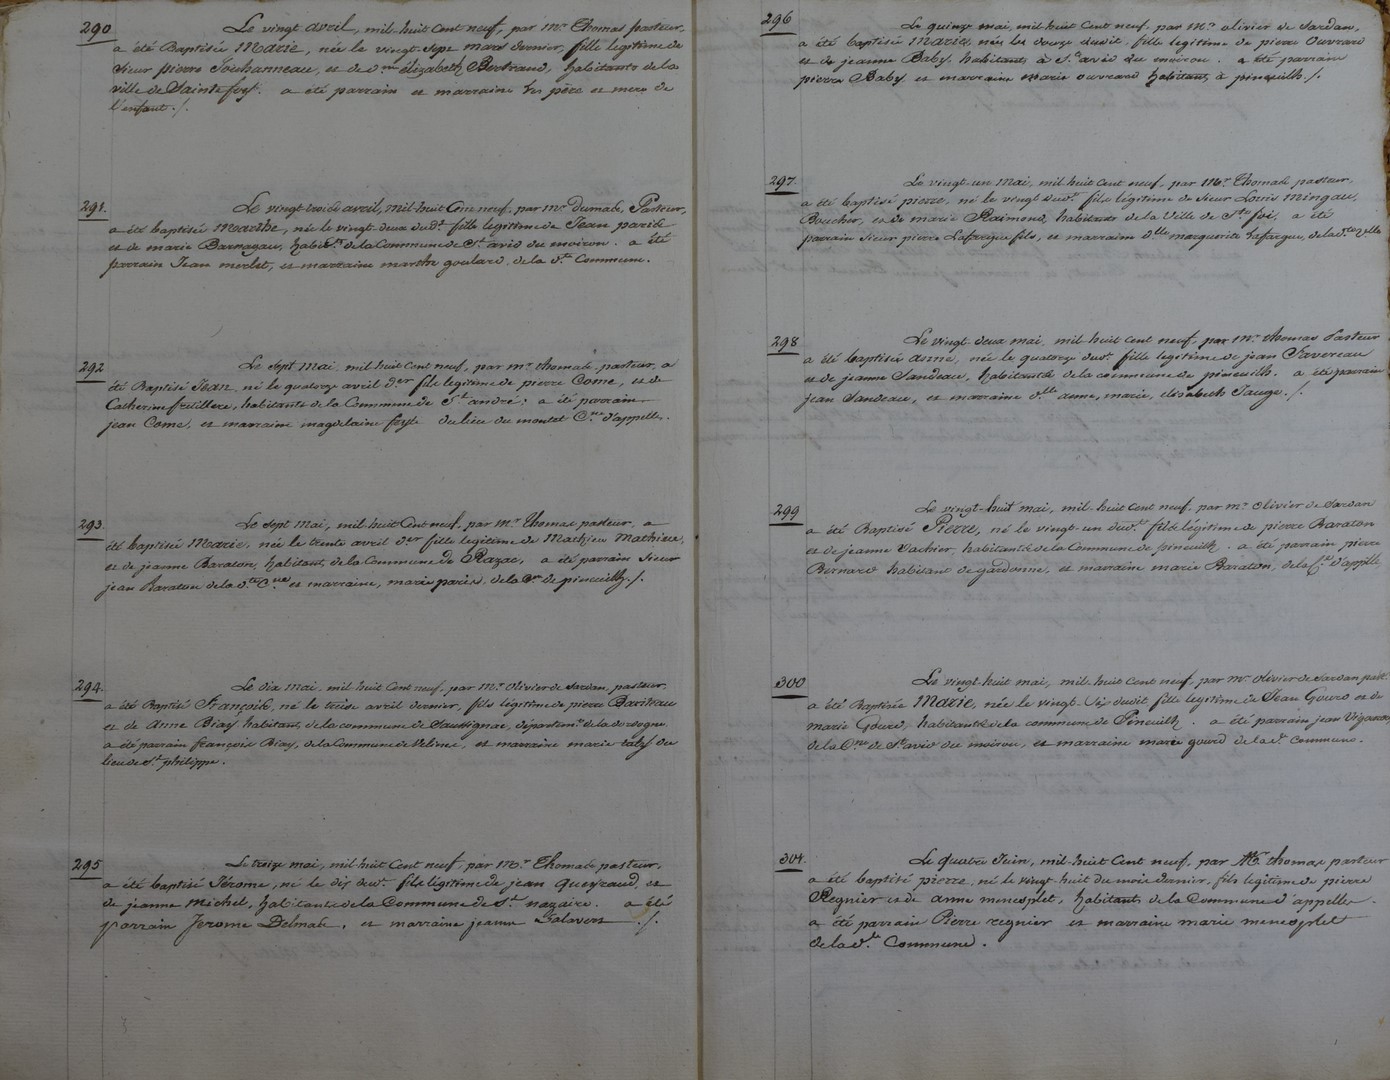 290 Le vingt avril, mil-huit cent neuf, par mr Thomas pasteur,
a été Baptisée Marie, née le vingt-sept mars dernier, fille legitime de
sieur pierre Jouhanneau, et de élizabeth Bertrand, habitants de la
ville de Sainte foy. a été parrain et marraine les père et mere de
l'enfant ./.
291. Le vingt-trois avril, mil-huit Cent neuf, par mr Dumas, Pasteur,
a été baptisée Marthe, née le vingt-deux dud.t fille legitime de Jean paris
et de marie Barragau, habit.ts de la Commune de St avid du moiron. a été
parrain Jean merlet, et marraine marthe goulard, de la d.te Commune.
292 Le sept mai, mil-huit cent neuf, par mr thomas pasteur, a
été Baptisé Jean, né le quatorze avril der fils legitime de pierre Come, et de
Catherine fretillere, habitants de la Commune de St andré; a été parrain
jean Come, et marraine magdelaine feyte du lieu du montet Cne d'appelle.
293. Le sept mai, mil-huit Cent neuf, par mr Thomas pasteur, a
été baptisée Marie, née le trente avril der fille legitime de Mathieu Mathieu,
et de jeanne Baraton, habitant, de la Commune de Razac, a été parrain sieur
jean Baraton de la d.te Cne et marraine, marie paris, de la Cne de pineuilh ./.
294. Le dix mai, mil-huit Cent neuf, par Mr Olivier de Sardan, pasteur,
a été Baptisé François, né le treize avril dernier, fils légitime de pierre Bariteau
et de Anne Biay habitant, de la commune de Saussignac, départem.t de la dordogne.
a été parrain françois Biay, de la Commune de Velines, et marraine marie du
lieu de St philippe.
295 Le treize mai, mil-huit Cent neuf, par Mr Thomas pasteur,
a été baptisé Jérome, né le dix dud.t fils légitime de jean queyraud, et
de jeanne michel, habitants de la Commune de St nazaire. a été
parrain Jerome Delmas, et marraine jeanne ./.
296 Le quinze mai, mil-huit Cent neuf, par Mr olivier de Sardan,
a été baptisée Marie, née le douze dudit, fille legitime de pierre Ouvrard
et de jeanne Baby habitants à St avid du moiron. a été parrain
pierre Baby et marraine marie ouvrard habitant, à pineuilh ./.
297. Le vingt-un mai, mil-huit cent neuf, par Mr Thomas pasteur,
a été baptisé pierre, né le vingt dud.t fils légitime de sieur Louis Mingau,
Boucher, et de marie Raimond, habitants de la Ville de Ste foi, a été
parrain sieur pierre Lafargue fils, et marraine d.lle marguerite Lafargue, de la d.te ville
298 Le vingt-deux mai, mil-huit cent neuf, par mr thomas Pasteur
a été baptisée anne, née le quatorze dud.t fille legitime de jean Favereau
et de jeanne Sandeau, habitants de la commune de pineuilh. a été parrain
jean Sandeau, et marraine d.lle anne, marie, elisabeth Jauge ./.
299 Le vingt-huit mai, mil-huit cent neuf, par mr Olivier de Sardan
a été Baptisé Pierre, né le vingt-un dud.t fils légitime de pierre Baraton
et de jeanne Vacher, habitants de la Commune de pineuilh. a été parrain pierre
Bernard habitant de gardonne, et marraine marie Baraton, de la Cne d'appelle
300 Le vingt-huit mai, mil-huit Cent neuf, par mr Olivier de Sardan past.
a été Baptisée Marie, née le vingt-six dudit, fille legitime de Jean Gourd et de
marie Gourd, habitants de la commune de Pineuilh. a été parrain jean
de la Cne de St avid du moiron, et marraine marie gourd de la d.te Commune.
301. Le quatre Juin, mil-huit Cent neuf, par Mr thomas pasteur
a été baptisé pierre, né le vingt-huit du mois dernier, fils legitime de pierre
Regnier et de anne menesplet, habitants de la Commune d'appelles.
a été parrain Pierre regnier et marraine marie menesplet
de la d.te Commune.